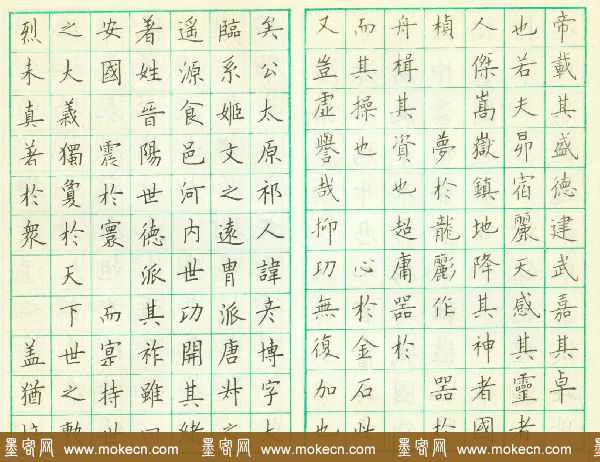 帝載其盛德建武嘉其卓
也若夫昴宿麗天感其靈者
人傑嵩嶽鎮地降其神者國
楨 夢於龍彲作 器於
舟楫其資也超庸器於
而其操也 心於金石此
又豈虛譽哉抑功無復加也
矣公太原祁人諱彥博字大
臨系姬文之遠胄派唐叔之
遙源食邑河内世功開其緒
著姓晉陽世德派其祚雖曰
安國 震於寰 而寔持世
之大義獨敻於天下世之勳
烈未真著於衆 盖猶
墨客网 www.mokecn.com 墨客网 www.mokecn.com 墨客网 www.mokecn.com